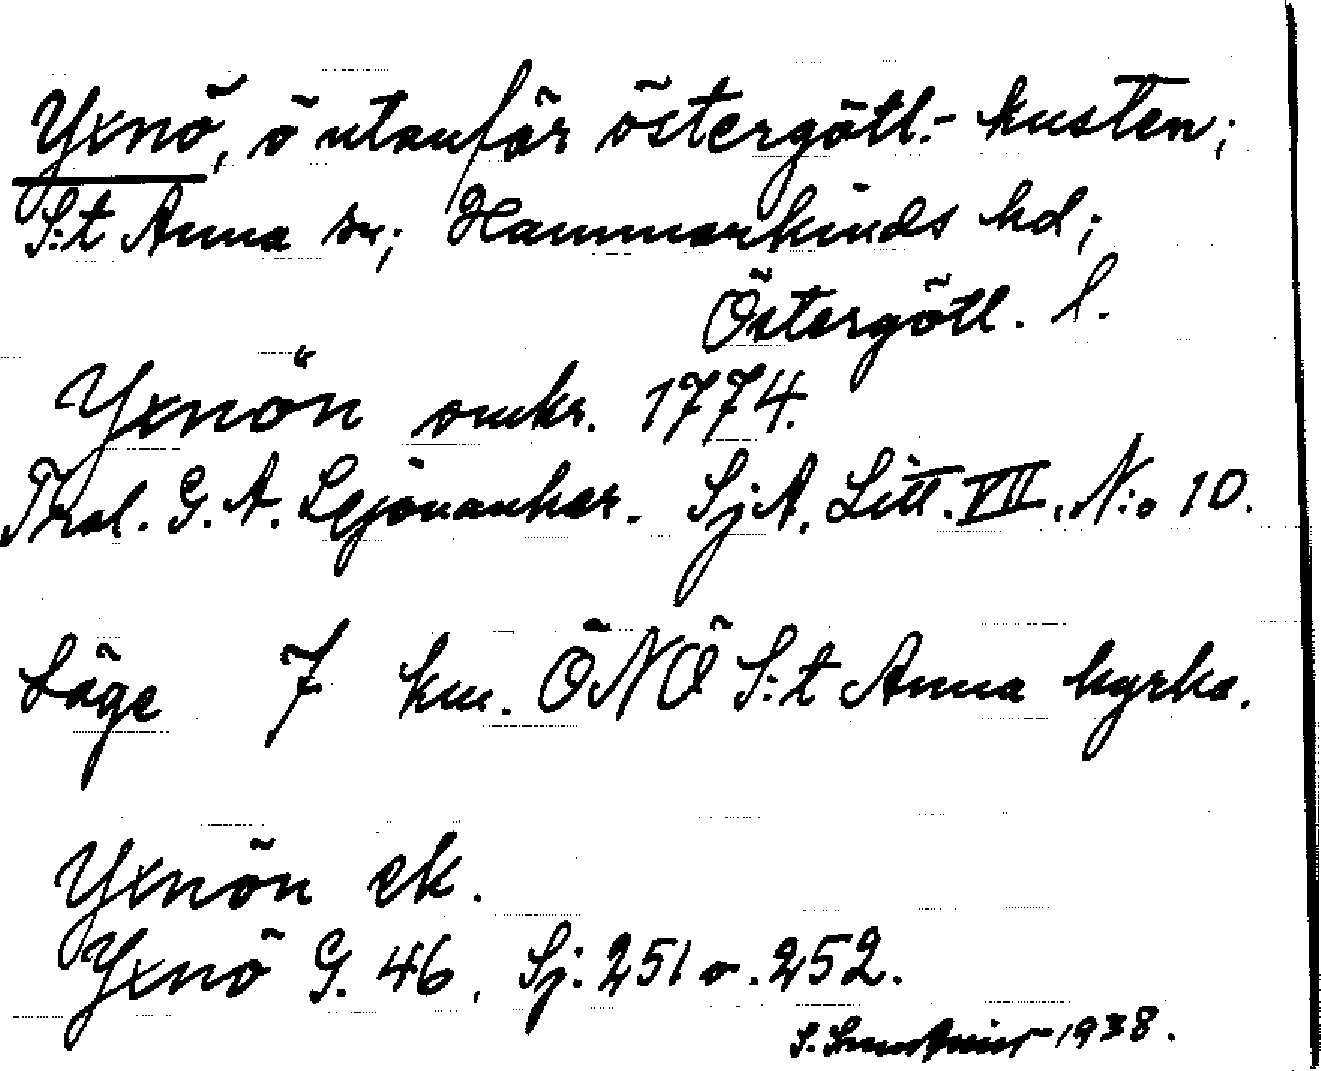 Yxnö, ö utanför östergötl.- kusten;
S:t Anna sn; Hammarkinds hd;
Östergötl. l.
Yxnön omkr. 1774.
G. A. Lejonanker. SjA. Litt. VII. N:o 10.
Läge 7 km. ÖNÖ S:t Anna kyrka.
Yxnön ek.
Yxnö G. 46. Sj. 251 o. 252.
S. 1938.